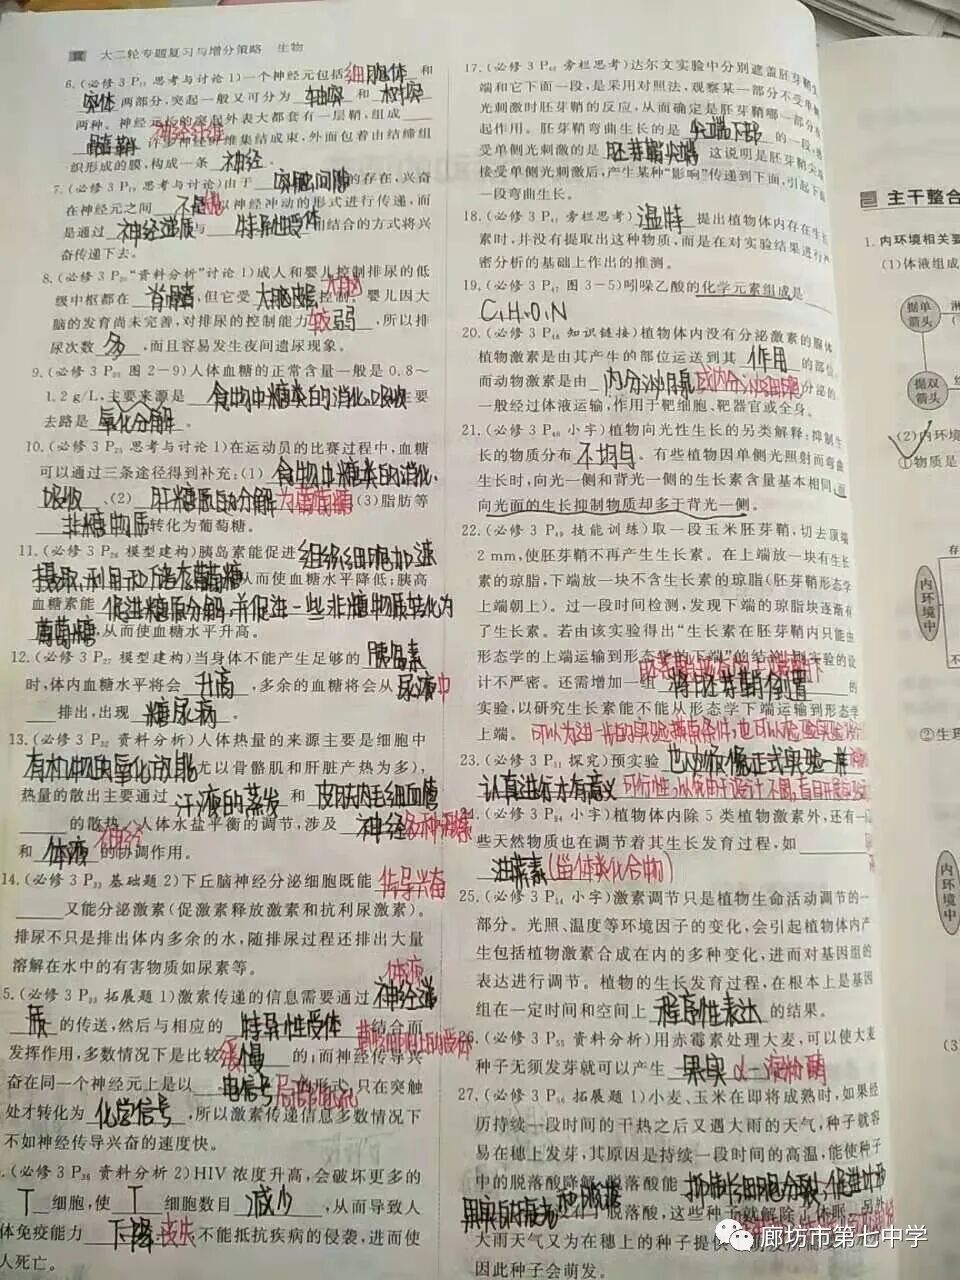 大二轮专题复习与增分策略 生物
6.(必修3 P17 思考与讨论1)一个神经元包括细胞体和
突体两部分,突起一般又可分为 轴突 和 树突
两种。神经元长的突起外表大都套有一层鞘,组成
神经纤维
髓鞘 许多神经纤维集结成束,外面包着由结缔组
织形成的膜,构成一条 神经 。
7.(必修3 思考与讨论1)由于 突触间隙 的存在,兴奋
在神经元之间 不是 以神经冲动的形式进行传递,而
是通过 神经递质 与 特异性受体 相结合的方式将兴
奋传递下去。
8.(必修3 P20“资料分析”讨论1)成人和婴儿控制排尿的低
级中枢都在 脊髓 ,但它受 大脑皮层 控制。婴儿因大
大脑
脑的发育尚未完善,对排尿的控制能力 较弱 ,所以排
尿次数 多 ,而且容易发生夜间遗尿现象。
9.(必修3 P25 图2-9)人体血糖的正常含量一般是0.8~
1.2 g/L,主要来源是 食物中糖类的消化、吸收 主要
去路是 氧化分解 。
10.(必修3 P25 思考与讨论1)在运动员的比赛过程中,血糖
可以通过三条途径得到补充:(1) 食物中糖类的消化、
吸收 、(2) 肝糖原的分解为葡萄糖 (3)脂肪等
非糖物质 转化为葡萄糖。
11.(必修3 P26 模型建构)胰岛素能促进 组织细胞加速
摄取、利用和储存葡萄糖 从而使血糖水平降低;胰高
血糖素能 促进糖原分解,并促进一些非糖物质转化为
葡萄糖,从而使血糖水平升高。
12.(必修3 P27 模型建构)当身体不能产生足够的 胰岛素
时,体内血糖水平将会 升高 ,多余的血糖将会从 尿液中
排出,出现 糖尿病 。
13.(必修3 P32 资料分析)人体热量的来源主要是细胞中
有机物氧化放能 尤以骨骼肌和肝脏产热为多),
热量的散出主要通过 汗液的蒸发 和 皮肤内毛细血管
的散热。人体水盐平衡的调节,涉及 神经 各种激素
和 体液 神经 的协调作用。
14.(必修3 P33 基础题2)下丘脑神经分泌细胞既能 传导兴奋
又能分泌激素(促激素释放激素和抗利尿激素)。
排尿不只是排出体内多余的水,随排尿过程还排出大量
溶解在水中的有害物质如尿素等。
体液
5.(必修3 P33 拓展题1)激素传递的信息需要通过 神经递
质 的传送,然后与相应的 特异性受体 结合而
发挥作用,多数情况下是比较 缓慢 的;而神经传导兴
奋在同一个神经元上是以 电信号 局部电流 的形式,只在突触
处才转化为 化学信号 ,所以激素传递信息多数情况下
不如神经传导兴奋的速度快。
(必修3 P36 资料分析2)HIV浓度升高,会破坏更多的
T 细胞,使 T 细胞数目 减少 ,从而导致人
体免疫能力 下降 丧失 不能抵抗疾病的侵袭,进而使
人死亡。
17.(必修3 旁栏思考)达尔文实验中分别遮盖胚芽鞘尖
端和它下面一段,是采用对照法,观察某一部分不受单侧
光刺激时胚芽鞘的反应,从而确定是胚芽鞘哪一部分在
起作用。胚芽鞘弯曲生长的是 尖端下部 的一段,感
受单侧光刺激的是 胚芽鞘尖端 这说明是胚芽鞘尖端
接受单侧光刺激后,产生某种“影响”传递到下面,引起下面
一段弯曲生长。
18.(必修3 P47 旁栏思考) 温特 提出植物体内存在生长
素时,并没有提取出这种物质,而是在对实验结果进行严
密分析的基础上作出的推测。
19.(必修3 P47 图3-5)吲哚乙酸的化学元素组成是
C、H、O、N
20.(必修3 P48 知识链接)植物体内没有分泌激素的腺体
植物激素是由其产生的部位运送到其 作用 的部位,
而动物激素是由 内分泌腺 或内分泌细胞 分泌的
一般经过体液运输,作用于靶细胞、靶器官或全身。
21.(必修3 P48 小字)植物向光性生长的另类解释:抑制生
长的物质分布 不均匀 。有些植物因单侧光照射而弯曲
生长时,向光一侧和背光一侧的生长素含量基本相同,而
向光面的生长抑制物质却多于背光一侧。
22.(必修3 P49 技能训练)取一段玉米胚芽鞘,切去顶端
2 mm,使胚芽鞘不再产生生长素。在上端放一块有生长
素的琼脂,下端放一块不含生长素的琼脂(胚芽鞘形态学
上端朝上)。过一段时间检测,发现下端的琼脂块逐渐有
了生长素。若由该实验得出“生长素在胚芽鞘内只能由
形态学的上端运输到形态学的下端”的结论则实验的设
计不严密。还需增加一组 将胚芽鞘倒置 的
实验,以研究生长素能不能从形态学下端运输到形态学
上端。
可以为进一步的实验摸索条件,也可以检验实验设计
23.(必修3 P51 探究)预实验 也必须像正式实验一样
认真进行才有意义
24.(必修3 P54 小字)植物体内除5类植物激素外,还有一
些天然物质也在调节着其生长发育过程,如
油菜素(甾体类化合物)
25.(必修3 P54 小字)激素调节只是植物生命活动调节的一
部分。光照、温度等环境因子的变化,会引起植物体内产
生包括植物激素合成在内的多种变化,进而对基因组的
表达进行调节。植物的生长发育过程,在根本上是基因
组在一定时间和空间上 程序性表达 的结果。
26.(必修3 P55 资料分析)用赤霉素处理大麦,可以使大麦
种子无须发芽就可以产生 果实 α-淀粉酶
27.(必修3 P56 拓展题1)小麦、玉米在即将成熟时,如果经
历持续一段时间的干热之后又遇大雨的天气,种子就容
易在穗上发芽,其原因是持续一段时间的高温,能使种子
中的脱落酸降解。脱落酸能 抑制细胞分裂,促进叶和
果实的衰老和脱落 没有了脱落酸,这些种子就解除
大雨天气又为在穗上的种子提供
因此种子会萌发。
主干整合
1.内环境相关要
(1)体液组成
据单
箭头
据双
箭头
(2)内环境
①物质是
内环境中
②生理
内环境中
廊坊市第七中学